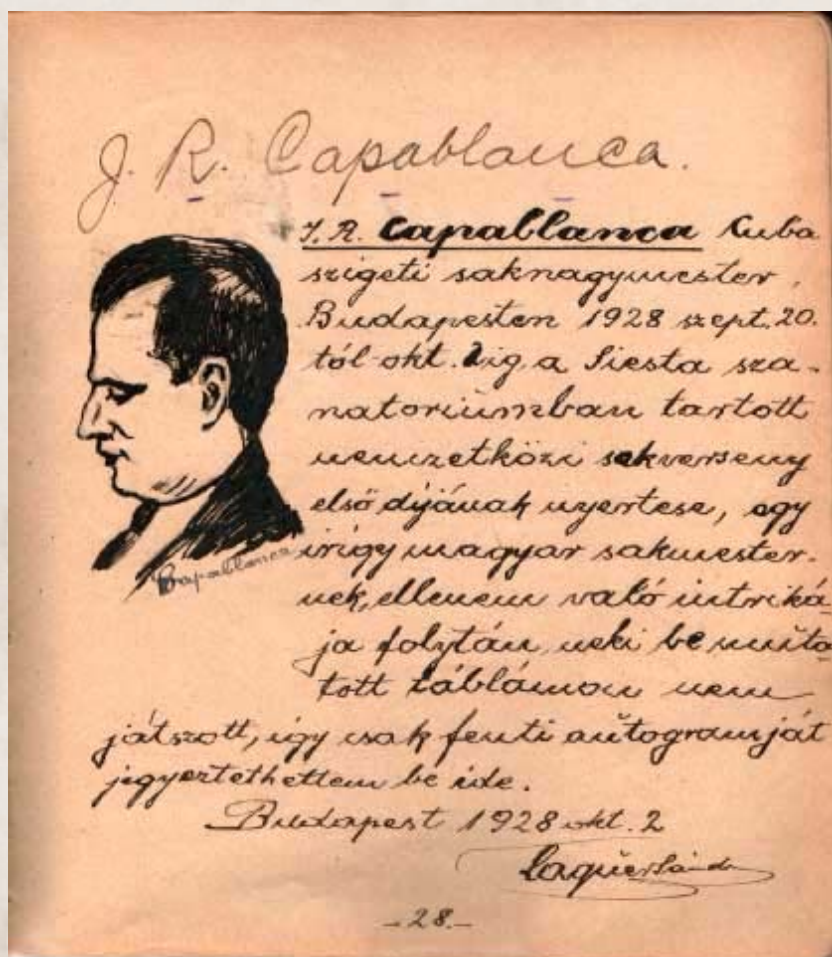 J. R. Capablanca.
J. R. Capablanca Cuba
szigeti saknagymester,
Budapesten 1928 szept. 20.
tól-okt. 2 ig, a Siesta sza-
natoriumban tartott
nemzetközi sakverseny
első díjának nyertese, egy
irigy magyar sakmester-
nek, ellenem való intriká-
ja folytán, neki bemuta-
tott táblámon nem
játszott, így csak fenti autogramját
jegyeztethettem be ide.
Budapest 1928 okt. 2
Laquer Sándor
Capablanca
-28.-